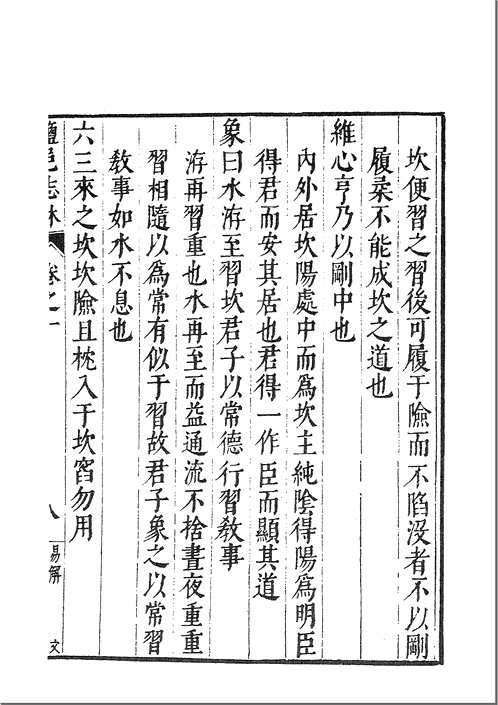 坎便習之習後可履于險而不陷没者不以剛
履柔不能成坎之道也
維心亨乃以剛中也
內外居坎陽處中而爲坎主純陰得陽爲明臣
得君而安其居也君得一作臣而顯其道
象曰水洊至習坎君子以常德行習敎事
洊再習重也水再至而益通流不捨晝夜重重
習相隨以爲常有似于習故君子象之以常習
敎事如水不息也
六三來之坎坎險且枕入于坎窞勿用
鹽邑志林 卷之一 八 易解 文